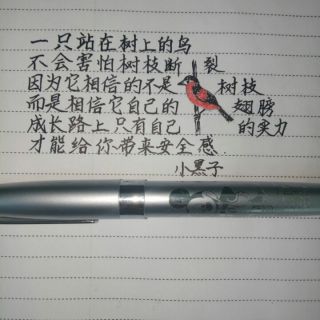 一只站在树上的鸟
不会害怕树枝断裂
因为它相信的不是树枝
而是相信它自己的翅膀
成长路上只有自己的实力
才能给你带来安全感.
小黑子